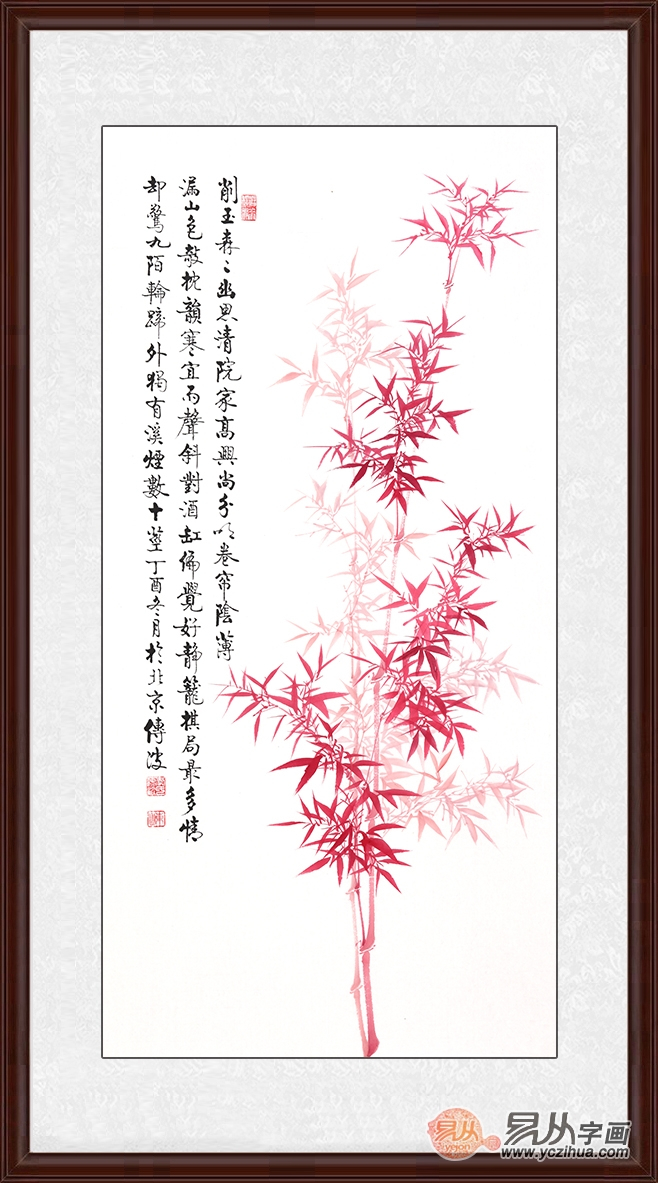 削玉森〻幽思清院家高興尚分明卷帘陰薄
漏山色敧枕韻寒宜雨聲斜對酒缸偏覺好靜籠棋局最多情
却驚九陌輪蹄外獨有溪煙數十莖丁酉冬月於北京傳波
易从
易从字画
www.yczihua.com